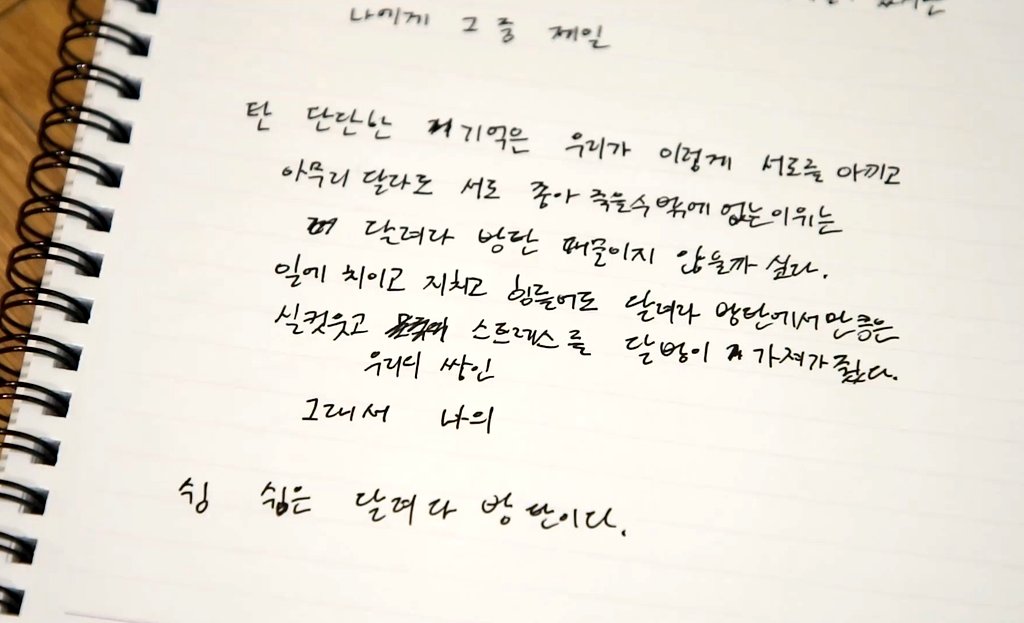 나에게 그 중 제일
탄 단단한 기억은 우리가 이렇게 서로를 아끼고
아무리 달라도 서로 좋아 죽을수밖에 없는이위는
달려라 방탄 때문이지 않을까 싶다.
일에 치이고 지치고 힘들어도 달려라 방탄에서만큼은
실컷웃고 스트레스를 달방이 가져가 줬다.
우리의 쌓인
그래서 나의
쉼 쉼은 달려라 방탄이다.